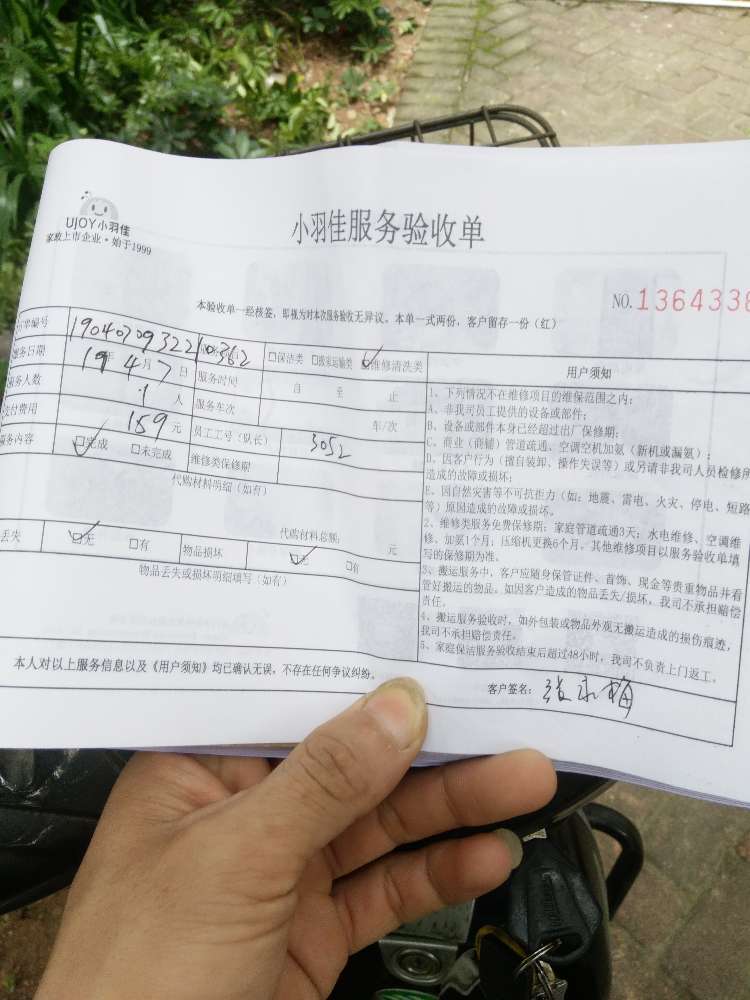 UJOY小羽佳
家政上市企业·始于1999
小羽佳服务验收单
NO.1364338
本验收单一经核签，即视为对本次服务验收无异议。本单一式两份，客户留存一份（红）
单编号 1904070932210362 □保洁类 □搬家运输类 ☑维修清洗类
服务日期 19年4月7日 服务时间 自 至 止
服务人数 1人 服务车次 车/次
支付费用 159元 员工工号（队长） 3052
服务内容 ☑完成 □未完成 维修类保修期
代购材料明细（如有）
代购材料总额： 元
丢失 ☑无 □有 物品损坏 ☑无 □有
物品丢失或损坏明细填写（如有）
用户须知
1、下列情况不在维修项目的维保范围之内：
A、非我司员工提供的设备或部件；
B、设备或部件本身已经超过出厂保修期；
C、商业（商铺）管道疏通、空调空机加氨（新机或漏氨）；
D、因客户行为（擅自装卸、操作失误等）或另请非我司人员检修所
造成的故障或损坏；
E、因自然灾害等不可抗拒力（如：地震、雷电、火灾、停电、短路
等）原因造成的故障或损坏。
2、维修类服务免费保修期：家庭管道疏通3天；水电维修、空调维
修、加氨1个月；压缩机更换6个月。其他维修项目以服务验收单填
写的保修期为准。
3、搬运服务中，客户应随身保管证件、首饰、现金等贵重物品并看
管好搬运的物品。如因客户造成的物品丢失/损坏，我司不承担赔偿
责任。
4、搬运服务验收时，如外包装或物品外观无搬运造成的损伤痕迹，
我司不承担赔偿责任。
5、家庭保洁服务验收结束后超过48小时，我司不负责上门返工。
本人对以上服务信息以及《用户须知》均已确认无误，不存在任何争议纠纷。
客户签名：张永梅